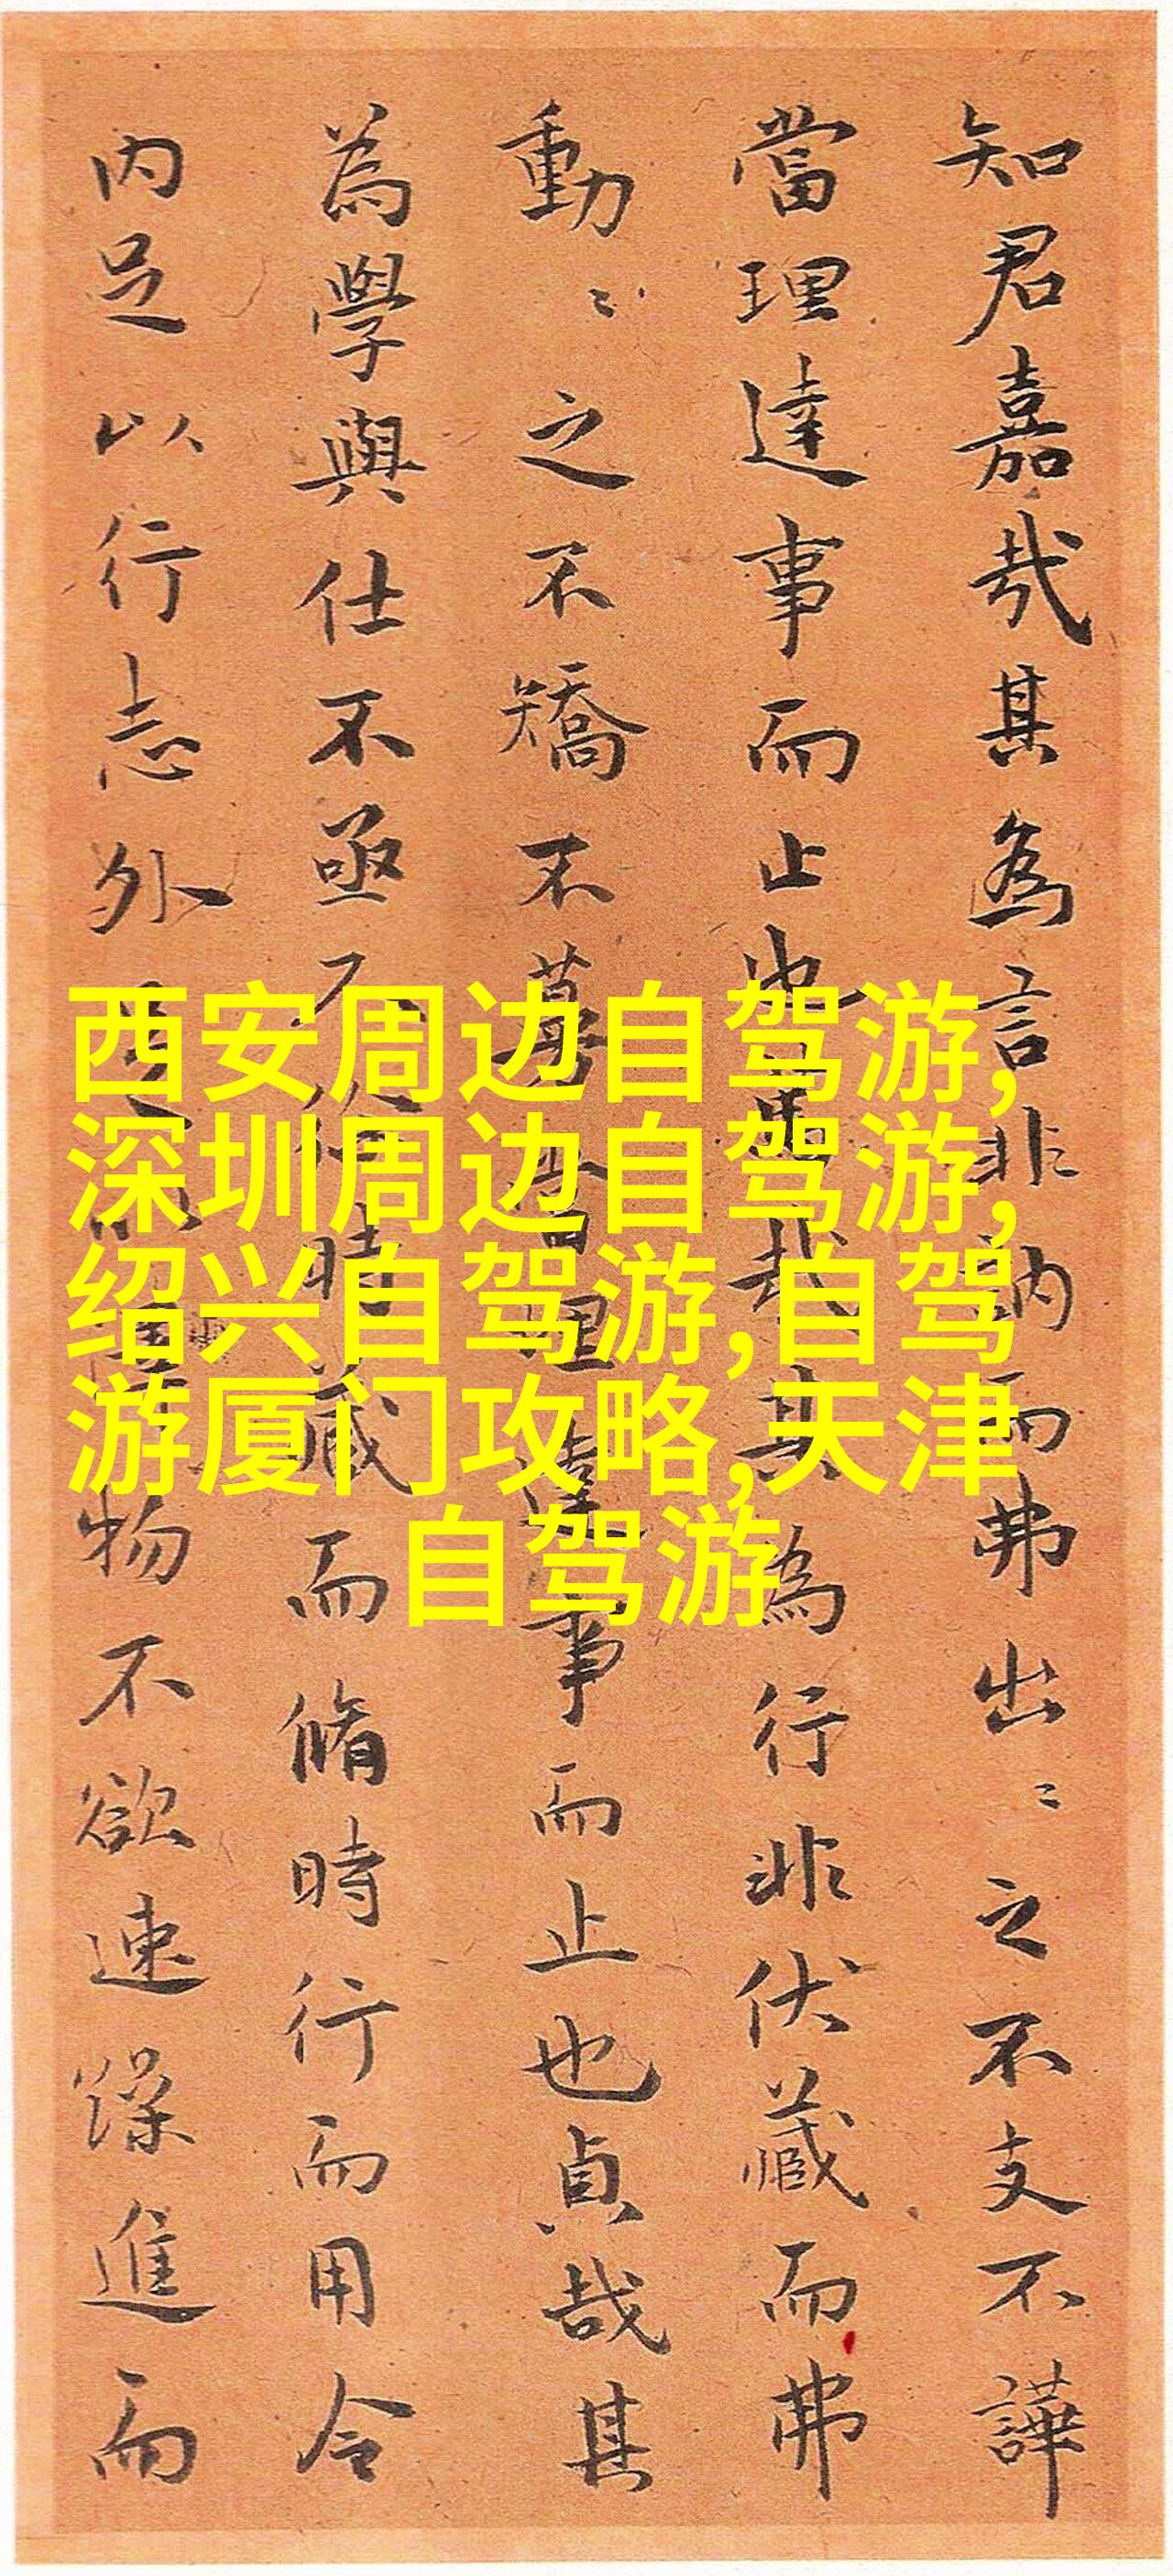 知君嘉哉其為言非訥而弗出〻之不支不譁
當理達事而止也哉其為行非伏藏而弗
動〻之不矯不當理達事而止也貞哉其
為學與仕不亟不時藏而脩時行而用令
內足以行志外足以物不欲速躁進而
西安周边自驾游,
深圳周边自驾游,
绍兴自驾游,自驾
游厦门攻略,天津
自驾游